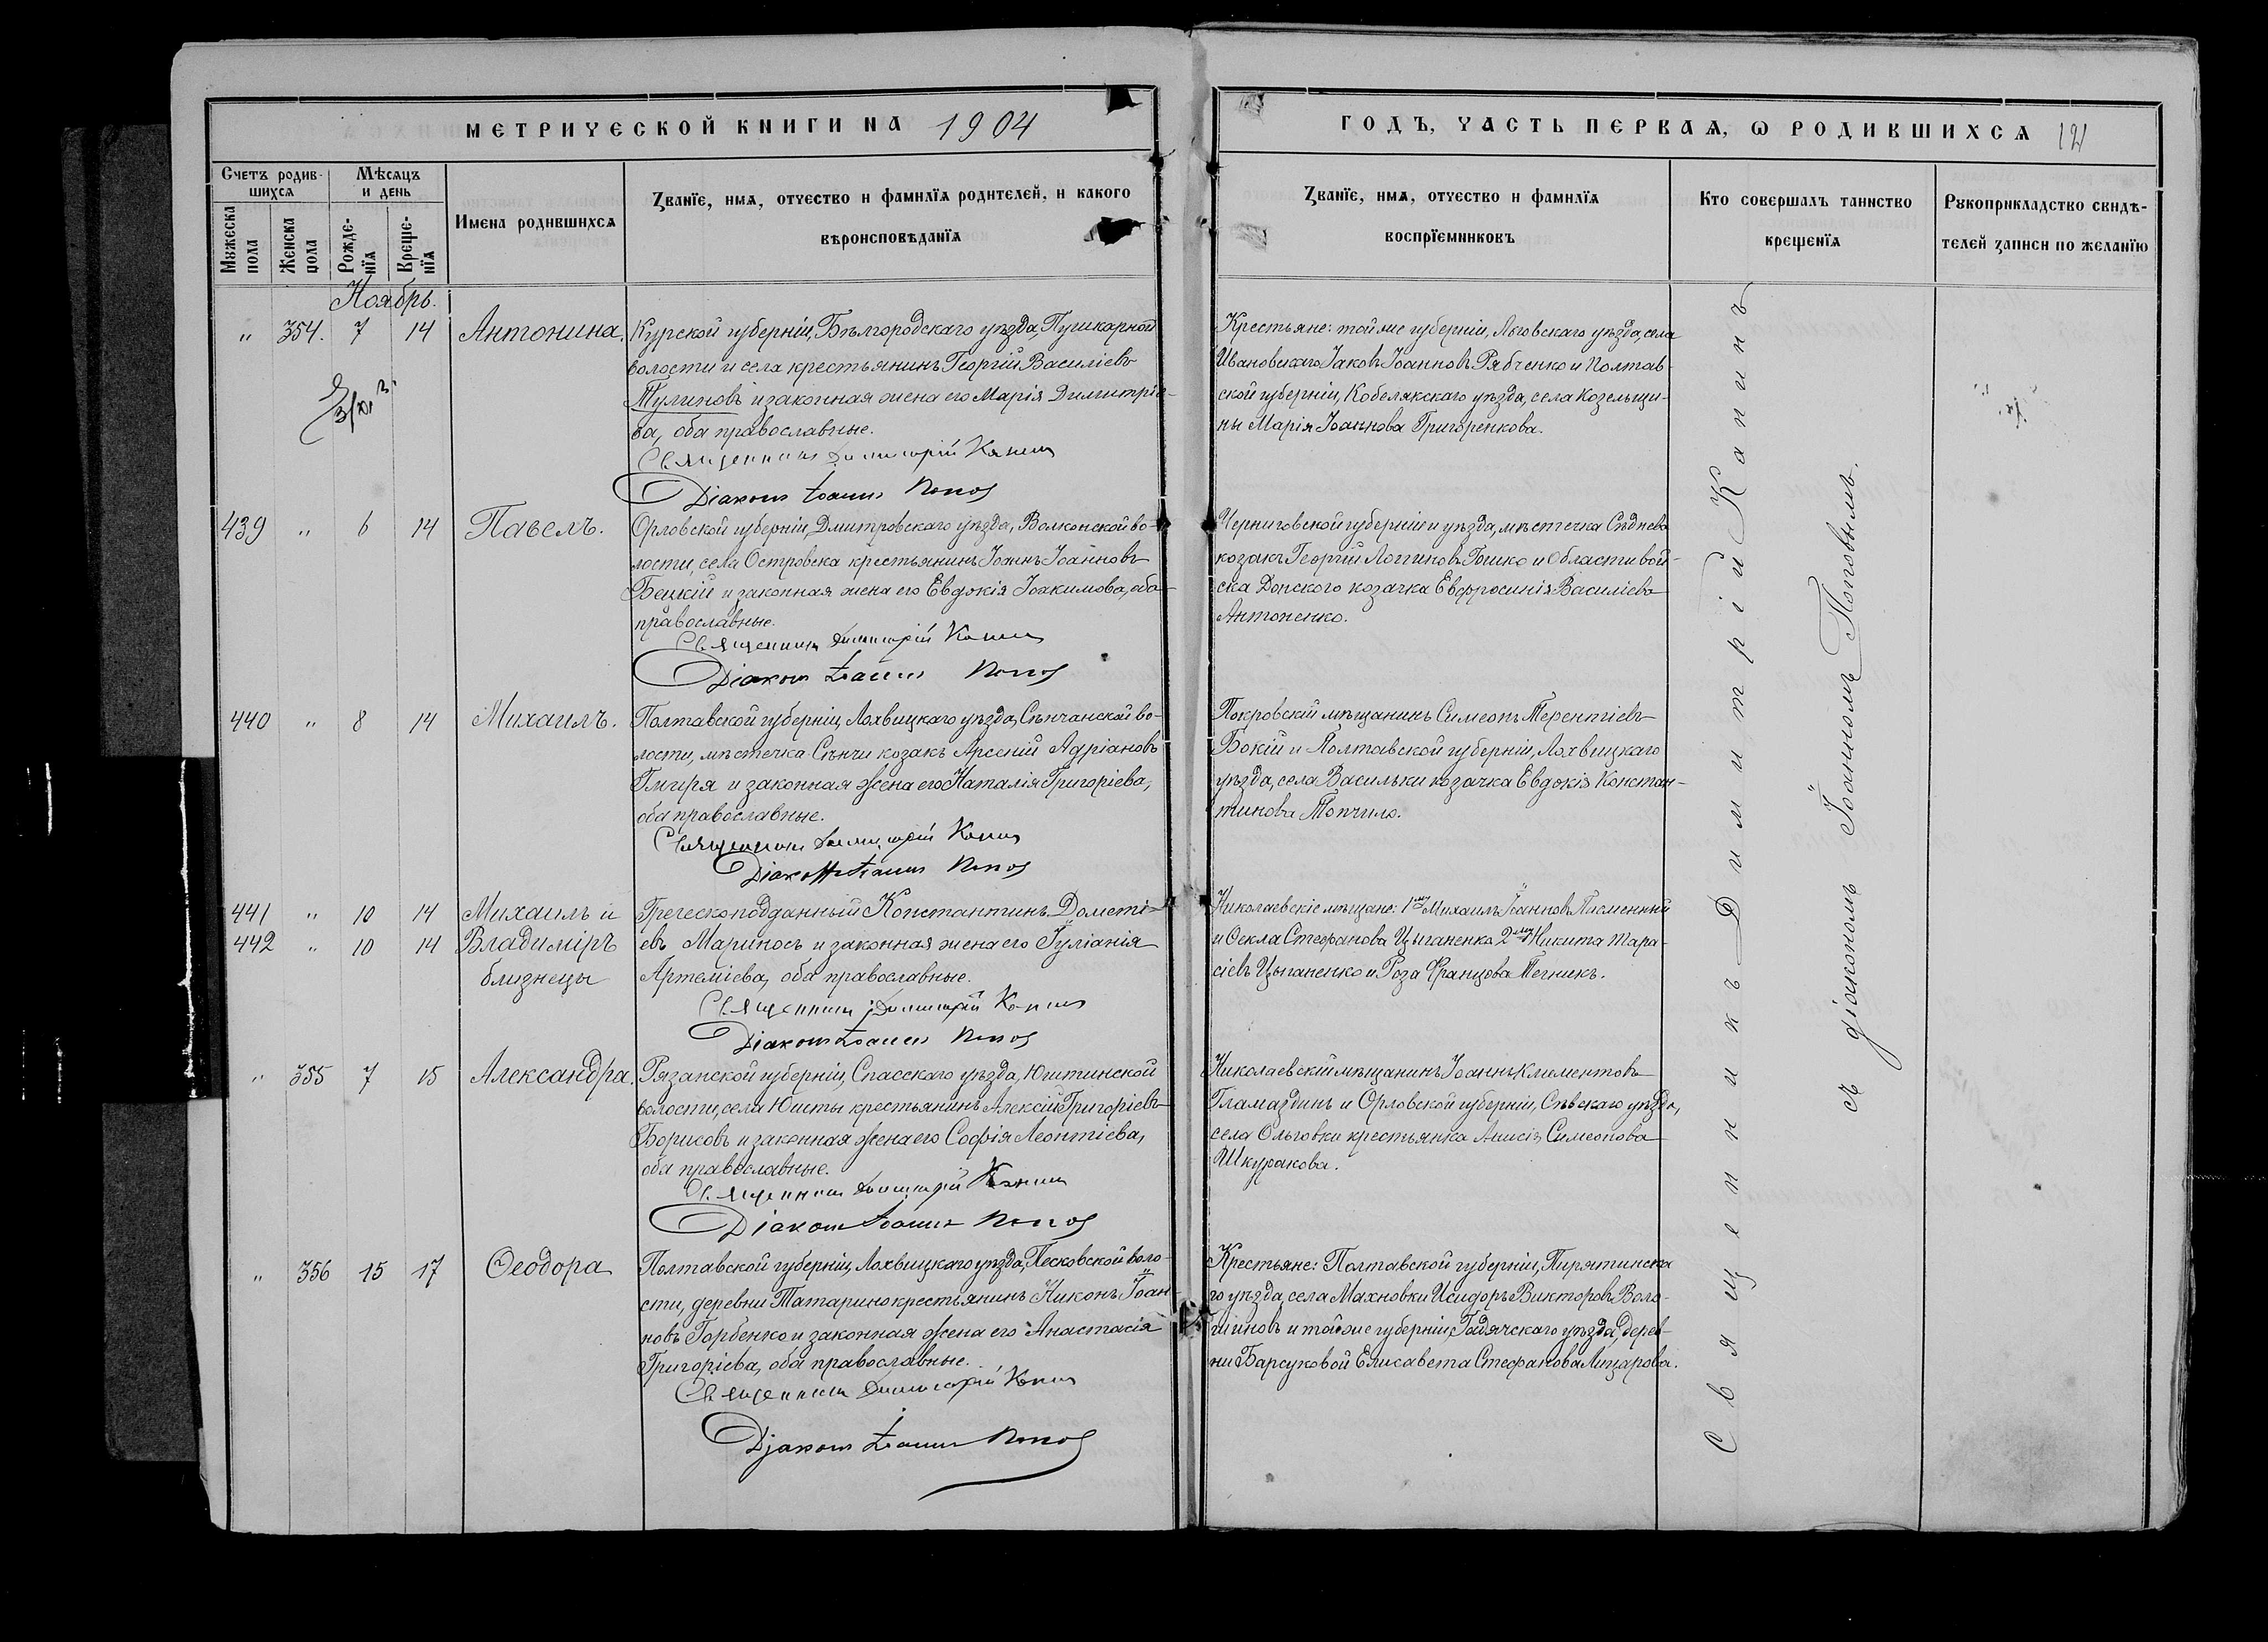 МЕТРИЧЕСКОЙ КНИГИ НА 1904
Счетъ родив-
шихся
Мѣсяцъ
и день
Мужеска
пола
Женска
пола
Рожде-
нія
Креще-
нія
Имена родившихся
Званіе, имя, отчество и фамилія родителей, и какого
вѣроисповѣданія
Ноябрь.
" 354. 7 14 Антонина. Курской губерніи, Бѣлгородскаго уѣзда, Пушкарной
волости и села крестьянинъ Георгій Василіевъ
Тулиновъ и законная жена его Марія Димитріе-
ва, оба православные.
Священникъ Димитрій Канинъ
Діаконъ Іоаннъ Поповъ
439 " 6 14 Павелъ. Орловской губерніи, Дмитровскаго уѣзда, Волконской во-
лости, села Островска крестьянинъ Іоаннъ Іоанновъ
Бецкій и законная жена его Евдокія Іоакимова, оба
православные.
Священникъ Димитрій Канинъ
Діаконъ Іоаннъ Поповъ
440 " 8 14 Михаилъ. Полтавской губерніи, Лохвицкаго уѣзда, Сѣнчанской во-
лости, мѣстечка Сѣнчи козакъ Арсеній Адріановъ
Гмиря и законная жена его Наталія Григоріева,
оба православные.
Священникъ Димитрій Канинъ
Діаконъ Іоаннъ Поповъ
441 " 10 14 Михаилъ и Греческоподданный Константинъ Дометі-
442 " 10 14 Владиміръ евъ Мариносъ и законная жена его Іуліанія
близнецы Артеміева, оба православные.
Священникъ Димитрій Канинъ
Діаконъ Іоаннъ Поповъ
" 355 7 15 Александра. Рязанской губерніи, Спасскаго уѣзда, Юштинской
волости, села Юшты крестьянинъ Алексій Григоріевъ
Борисовъ и законная жена его Софія Леонтіева,
оба православные.
Священникъ Димитрій Канинъ
Діаконъ Іоаннъ Поповъ
" 356 15 17 Ѳеодора Полтавской губерніи, Лохвицкаго уѣзда, Песковской воло-
сти, деревни Татарино крестьянинъ Никонъ Іоан-
новъ Горбенко и законная жена его Анастасія
Григоріева, оба православные.
Священникъ Димитрій Канинъ
Діаконъ Іоаннъ Поповъ
ГОДЪ, ЧАСТЬ ПЕРВАЯ, Ѡ РОДИВШИХСЯ 121
Званіе, имя, отчество и фамилія
воспріемниковъ
Кто совершалъ таинство
крещенія
Рукоприкладство свидѣ-
телей записи по желанію
Крестьяне: той же губерніи, Льговскаго уѣзда, села
Ивановскаго Іаковъ Іоанновъ Рябченко и Полтав-
ской губерніи, Кобелякскаго уѣзда, села Козельщи-
ны Марія Іоаннова Григоренкова.
Черниговской губерніи и уѣзда, мѣстечка Сѣднева
козакъ Георгій Логгиновъ Бошко и Области вой-
ска Донского козачка Евфросинія Василіева
Антоненко.
Покровскій мѣщанинъ Симеонъ Терентіевъ
Бокій и Полтавской губерніи, Лохвицкаго
уѣзда, села Васильки козачка Евдокія Констан-
тинова Топчило.
Николаевскіе мѣщане: 1го Михаилъ Іоанновъ Писменный
и Ѳекла Стефанова Цыганенко 2го Никита Тара-
сіевъ Цыганенко и Роза Францова Течникъ.
Николаевскій мѣщанинъ Іоаннъ Климентовъ
Гламаздинъ и Орловской губерніи, Сѣвскаго уѣзда,
села Ольговки крестьянка Анисія Симеонова
Шкуракова.
Крестьяне: Полтавской губерніи, Пирятинска-
го уѣзда, села Махновки Исидоръ Викторовъ Воло-
шиновъ и той же губерніи, Гадячскаго уѣзда, дерев-
ни Барсуковой Елисавета Стефанова Лицарова.
Священникъ Димитрій Канинъ
съ діакономъ Іоанномъ Поповымъ.